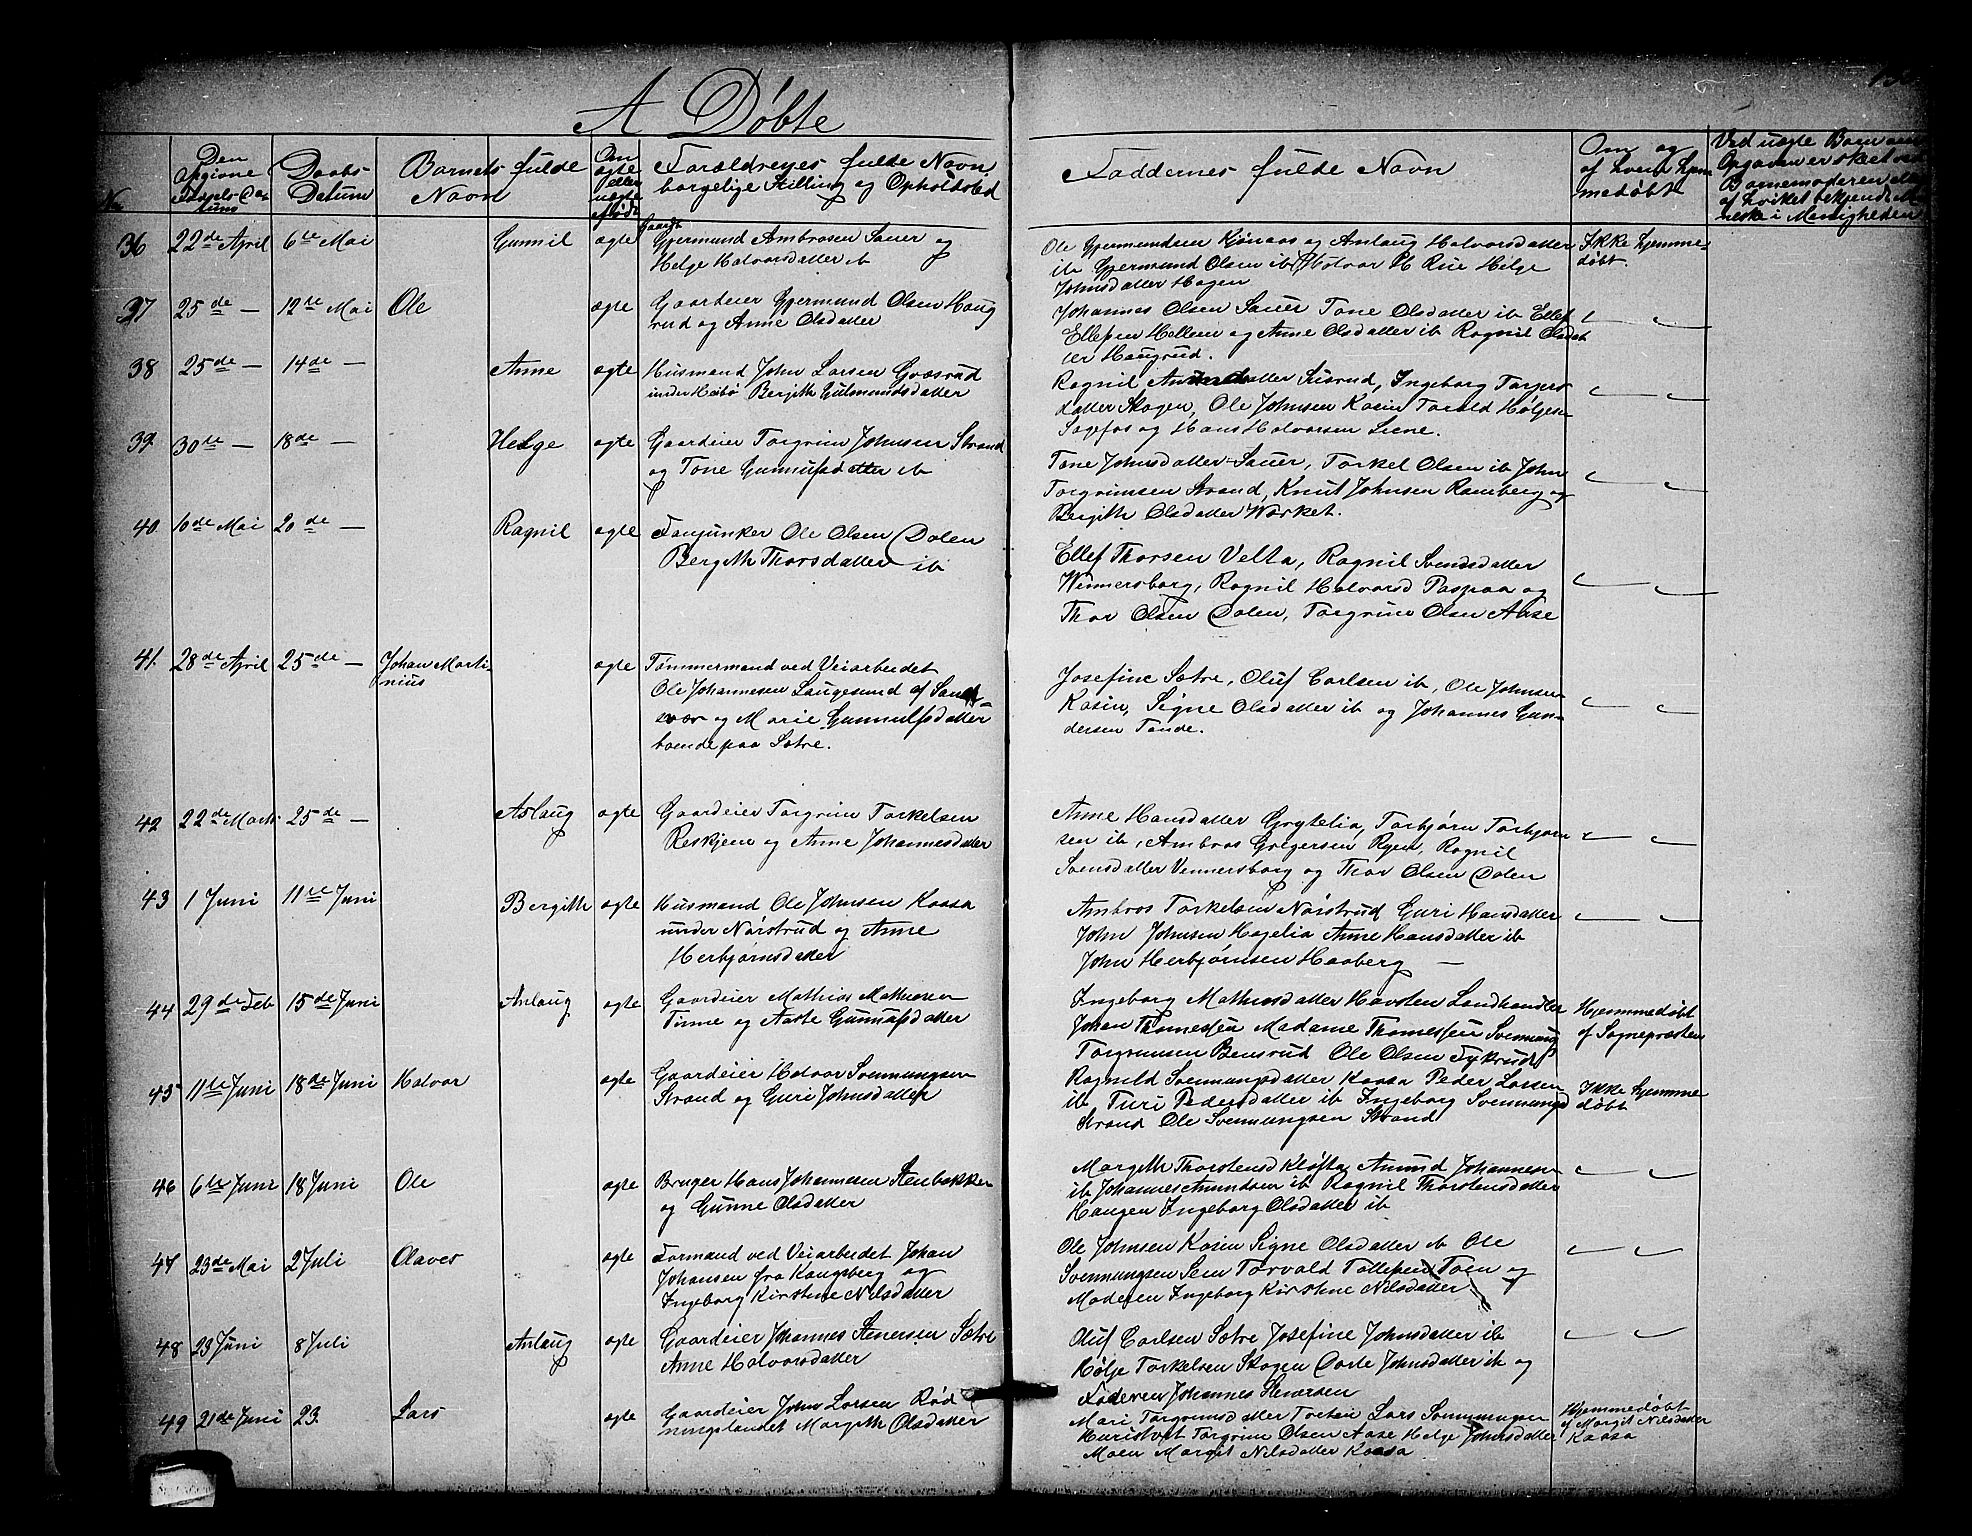 A Døbte
No
Den Opgivne Fødsels Datum
Daabs Datum
Barnets fulde Navn
Om ægte eller uægte født
Forældrenes fulde Navn, borgelige Stilling og Opholdsted
Faddernes fulde Navn
Om og af hvem hjemmedøbt
36 22de April 6te Mai Gunnil ægte Gaardr Gjermund Ambrosen Sauer og
Helge Halvorsdatter ib
Ole Gjermundsen Kjønaas og Anlaug Halvorsdatter
ib Gjermund Olsen ib Halvor P Rue Helge
Johnsdatter Hagen
Ikke hjemme-
døbt.
37 25de — 12te Mai Ole ægte Gaardeier Gjermund Olsen Haug
rud og Anne Olsdatter
Johannes Olsen Sauer Tone Olsdatter ib Ellef
Ellefsen Hellem og Anne Olsdatter ib Ragnil Olsdat
ter Haugrud.
38 25de — 14de — Anne ægte Husmand John Larsen Graasrud
under Høibø Bergith Gulmundsdatter
Ragnil Amundsdatter Susrud, Ingeborg Torgers
datter Skogen, Ole Johnsen Kasin Torald Hølges
Sagefos og Hans Halvorsen Liene.
39 30de — 18de — Helge ægte Gaardeier Torgrim Johnsen Strand
og Tone Gunnufsdatter ib
Tone Johnsdatter Sauer, Torkel Olsen ib John
Torgrimsen Strand, Knut Johnsen Ramberg og
Bergith Olsdatter Wærket.
40 10de Mai 20de — Ragnil ægte Fanjunker Ole Olsen Dalen
Bergith Thorsdatter ib
Ellef Thorsen Velta, Ragnil Svendsdatter
Winnersborg, Ragnil Halvorsd Paspaa og
Thor Olsen Dolen, Torgrim Olsen Aase
41 28de April 25de — Johan Marti-
nius ægte Tømmermand ved Veiarbeidet
Ole Johannesen Laugesund af Sand-
svær og Marie Gunnulfsdatter
boende paa Sætre.
Josefine Sætre, Oluf Carlsen ib, Ole Johnsen
Kasin, Signe Olsdatter ib og Johannes Gun-
dersen Tande.
42 22de Marts 25de — Aslaug ægte Gaardeier Torgrim Torkelsen
Reskjem og Anne Johannesdatter
Anne Hansdatter Grytelia, Torbjørn Torbjørn
sen ib, Ambros Gregersen Ryen, Ragnil
Svensdatter Vennersborg og Thor Olsen Dolen
43 1 Juni 11te Juni Bergith ægte Husmand Ole Johnsen Kaasa
under Nørstrud og Anne
Herbjørnsdatter
Ambros Torkelsen Nørstrud Guri Hansdatter
John Johnsen Hagelia Anne Hansdatter ib
John Herbjørnsen Haaberg —
44 29de Feb 15de Juni Anlaug ægte Gaardeier Mathias Mathisen
Tinne og Aaste Gunnufsdatter
Ingeborg Mathisdatter Havsten Landhandler
Johan Thomessen Madame Thomessen Svennung
Torgrimsen Bensrud Ole Olsen Fykrud
Hjemmedøbt
af Sognepræsten
45 11te Juni 18de Juni Halvor ægte Gaardeier Halvor Svennungsen
Strand og Guri Johnsdatter
Ragnild Svennungsdatter Kaasa Peder Larsen
ib Turi Pedersdatter ib Ingeborg Svennungsd
Strand Ole Svennungsen Strand
Ikke hjemme
døbt
46 6te Juni 18 Juni Ole ægte Bruger Hans Johannesen Stenbakken
og Gunne Olsdatter
Margith Thorstensd Kløfta Amund Johannesen
ib Johannes Amundsen ib Ragnil Thorstensdatter
Haugen Ingeborg Olsdatter ib
47 23de Mai 2 Juli Olaves ægte Formand ved Veiarbeidet Johan
Johansen fra Kongsberg og
Ingeborg Kirstine Nilsdatter
Ole Johnsen Kasin Signe Olsdatter ib Ole
Svennungsen Sem Torvald Tollefsen Toen og
Moderen Ingeborg Kirstine Nilsdatter
48 23 Juni 8 Juli Anlaug ægte Gaardeier Johannes Stenersen Sætre
Anne Halvorsdatter
Oluf Carlsen Sætre Josefine Johnsdatter ib
Hølje Torkelsen Skogen Dorte Johnsdatter ib og
Faderen Johannes Stenersen
49 21de Juni 23. Lars ægte Gaardeier John Larsen Rød
ningslandet Margith Olsdatter
Mari Torgrimsdatter Lars Svennungsen
Torgrim Olsen Aase Helge Johnsdatter
Moen Margit Nilsdatter Kaasa
Hjemmedøbt
af Margit Nilsdatter
Kaasa